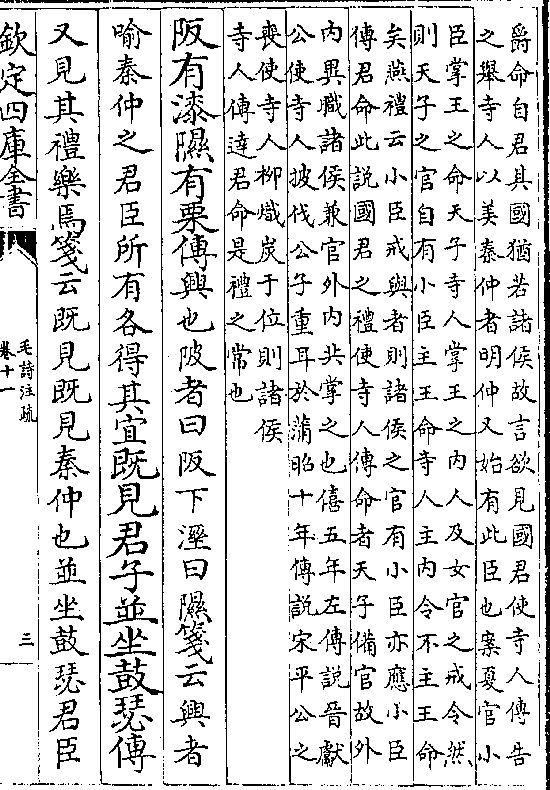 爵命自君其國猶若諸侯故言欲見國君使寺人傳告
之舉寺人以美秦仲者明仲又始有此臣也案夏官小
臣掌王之命天子寺人掌王之内人及女官之戒令然
則天子之官自有小臣主王命寺人主内令不主王命
矣燕禮云小臣戒與者則諸侯之官有小臣亦應小臣
傳君命此説國君之禮使寺人傳命者天子備官故外
内異職諸侯兼官外内共掌之也僖五年左傳説晉獻
公使寺人披伐公子重耳於蒲昭十年傳説宋平公之
喪使寺人柳熾炭于位則諸侯
寺人傳達君命是禮之常也
阪有漆隰有栗傳興也陂者曰阪下溼曰隰箋云興者
喻秦仲之君臣所有各得其宜既見君子並坐鼓瑟傳
又見其禮樂焉箋云既見既見秦仲也並坐鼓瑟君臣
欽定四庫全書
毛詩注疏
卷十一
三